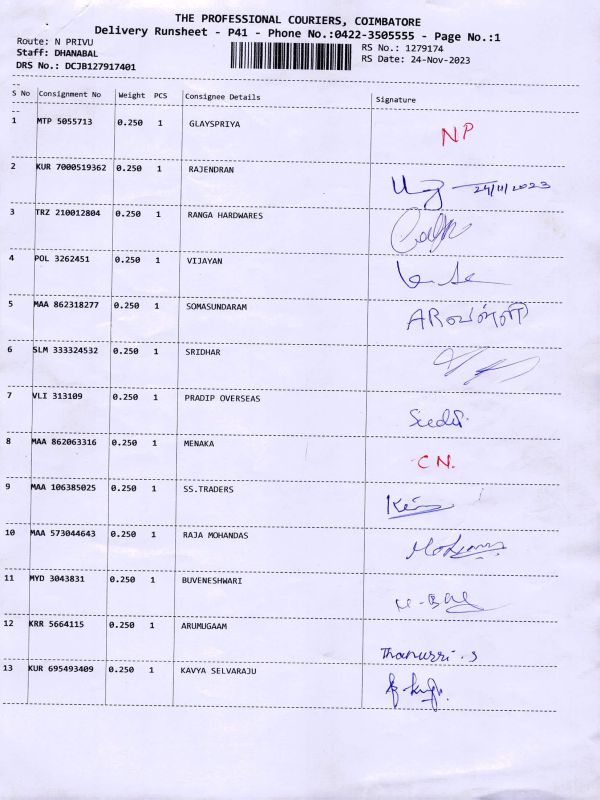 THE PROFESSIONAL COURIERS, COIMBATORE
Delivery Runsheet - P41 - Phone No.:0422-3505555 - Page No.:1
Route: N PRIVU
RS No.: 1279174
Staff: DHANABAL
RS Date: 24-Nov-2023
DRS No.: DCJB127917401
S No Consignment No Weight PCS Consignee Details Signature
1 MTP 5055713 0.250 1 GLAYSPRIYA NP
2 KUR 7000519362 0.250 1 RAJENDRAN 24/11/2023
3 TRZ 210012804 0.250 1 RANGA HARDWARES
4 POL 3262451 0.250 1 VIJAYAN
5 MAA 862318277 0.250 1 SOMASUNDARAM
6 SLM 333324532 0.250 1 SRIDHAR
7 VLI 313109 0.250 1 PRADIP OVERSEAS
8 MAA 862063316 0.250 1 MENAKA CN.
9 MAA 106385025 0.250 1 SS.TRADERS
10 MAA 573044643 0.250 1 RAJA MOHANDAS
11 MYD 3043831 0.250 1 BUVENESHWARI
12 KRR 5664115 0.250 1 ARUMUGAAM
13 KUR 695493409 0.250 1 KAVYA SELVARAJU